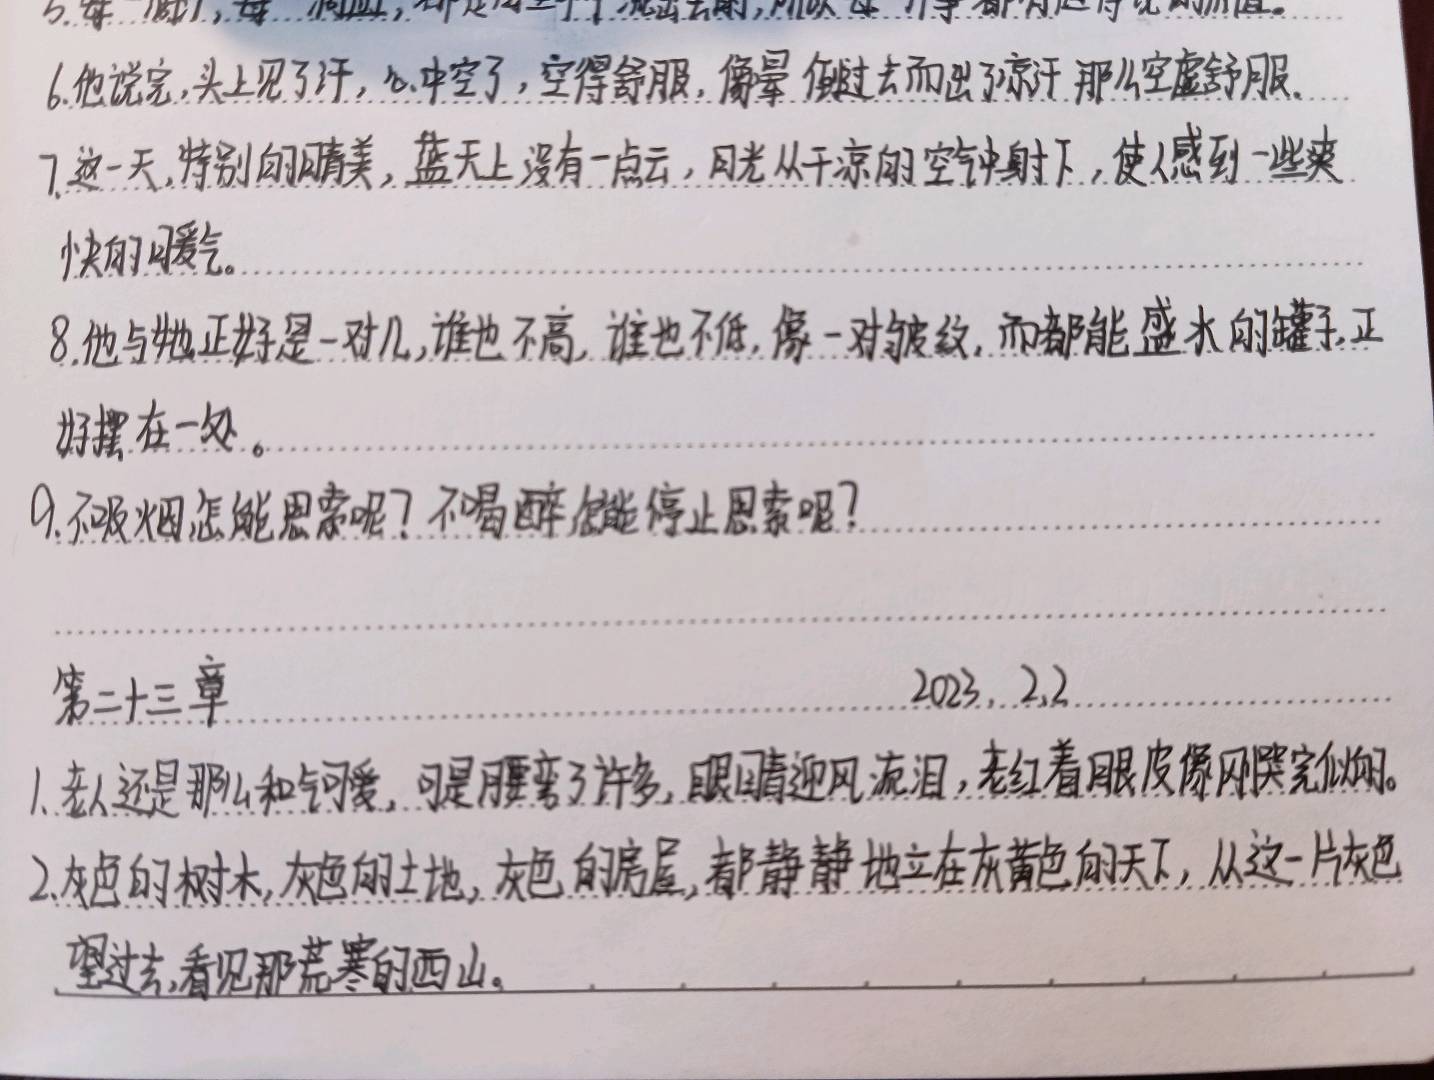 6.他说完,头上见了汗,心中空了,空得舒服,像晕倒过去而出了凉汗那么空虚舒服.
7.这一天,特别的晴美,蓝天上没有一点云,日光从干凉的空气中射下,使人感到一些爽
快的暖气。
8.他与她正好是一对儿,谁也不高,谁也不低,像一对都破纹,而都能盛水的罐子,正
好摆在一处。
9.不吸烟怎能思索呢?不喝醉怎能停止思索呢?
第二十三章 2023.2.2
1.老人还是那么和气可爱,可是腰弯了许多,眼睛迎风流泪,老红着眼皮像刚哭完似的。
2.灰色的树木,灰色的土地,灰色的房屋,都静静地立在灰黄色的天下,从这一片灰色
望过去,看见那荒寒的西山。